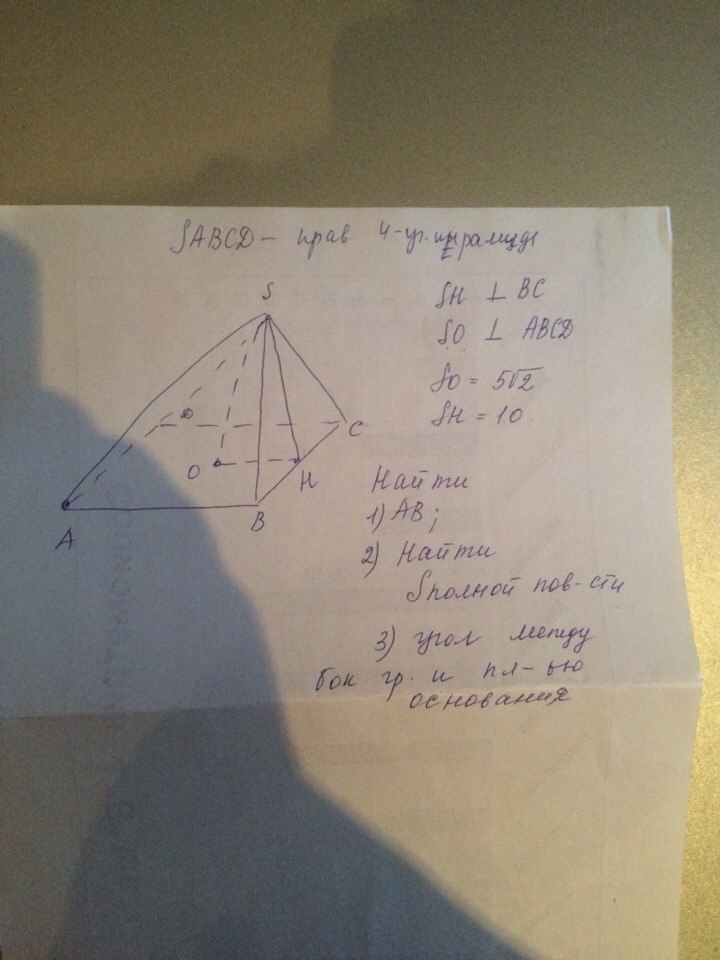 SABCD – прав 4-уг. пирамида
S
SH ⊥ BC
SO ⊥ ABCD
SO = 5√2
SH = 10
D
C
O
H
A
B
Найти
1) AB;
2) Найти
Sполной пов-сти
3) угол между
бок гр. и пл-ью
основания